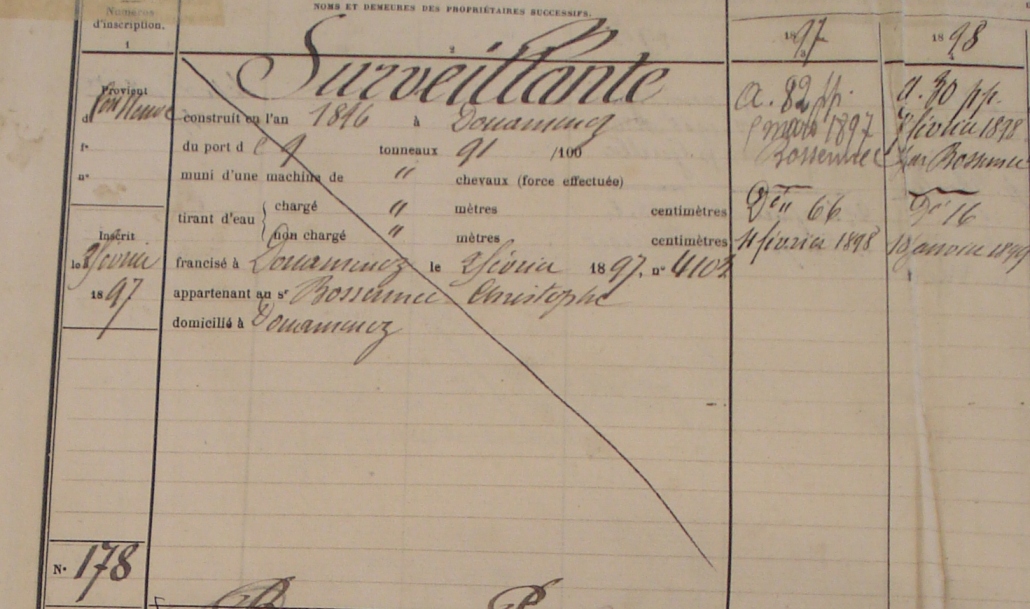 NOMS ET DEMEURES DES PROPRIÉTAIRES SUCCESSIFS.
Numéros d'inscription.
1
2
1897
3
1898
4
Surveillante
Provient
d
construit en l'an 1896 à Douarnenez
du port de 9 tonneaux 91 /100
f°
n°
muni d'une machine de " chevaux (force effectuée)
tirant d'eau { chargé " mètres centimètres
non chargé " mètres centimètres
Inscrit
le 2 février
1897
francisé à Douarnenez le 2 février 1897. n° 4102
appartenant au sr Bossennec Christophe
domicilié à Douarnenez
a. 82 pp.
mars 1897
Bossennec
Dce n° 66
11 février 1898
a. 30 pp.
7 février 1898
par Bossennec
Dce 16
18 janvier 1899
N° 178